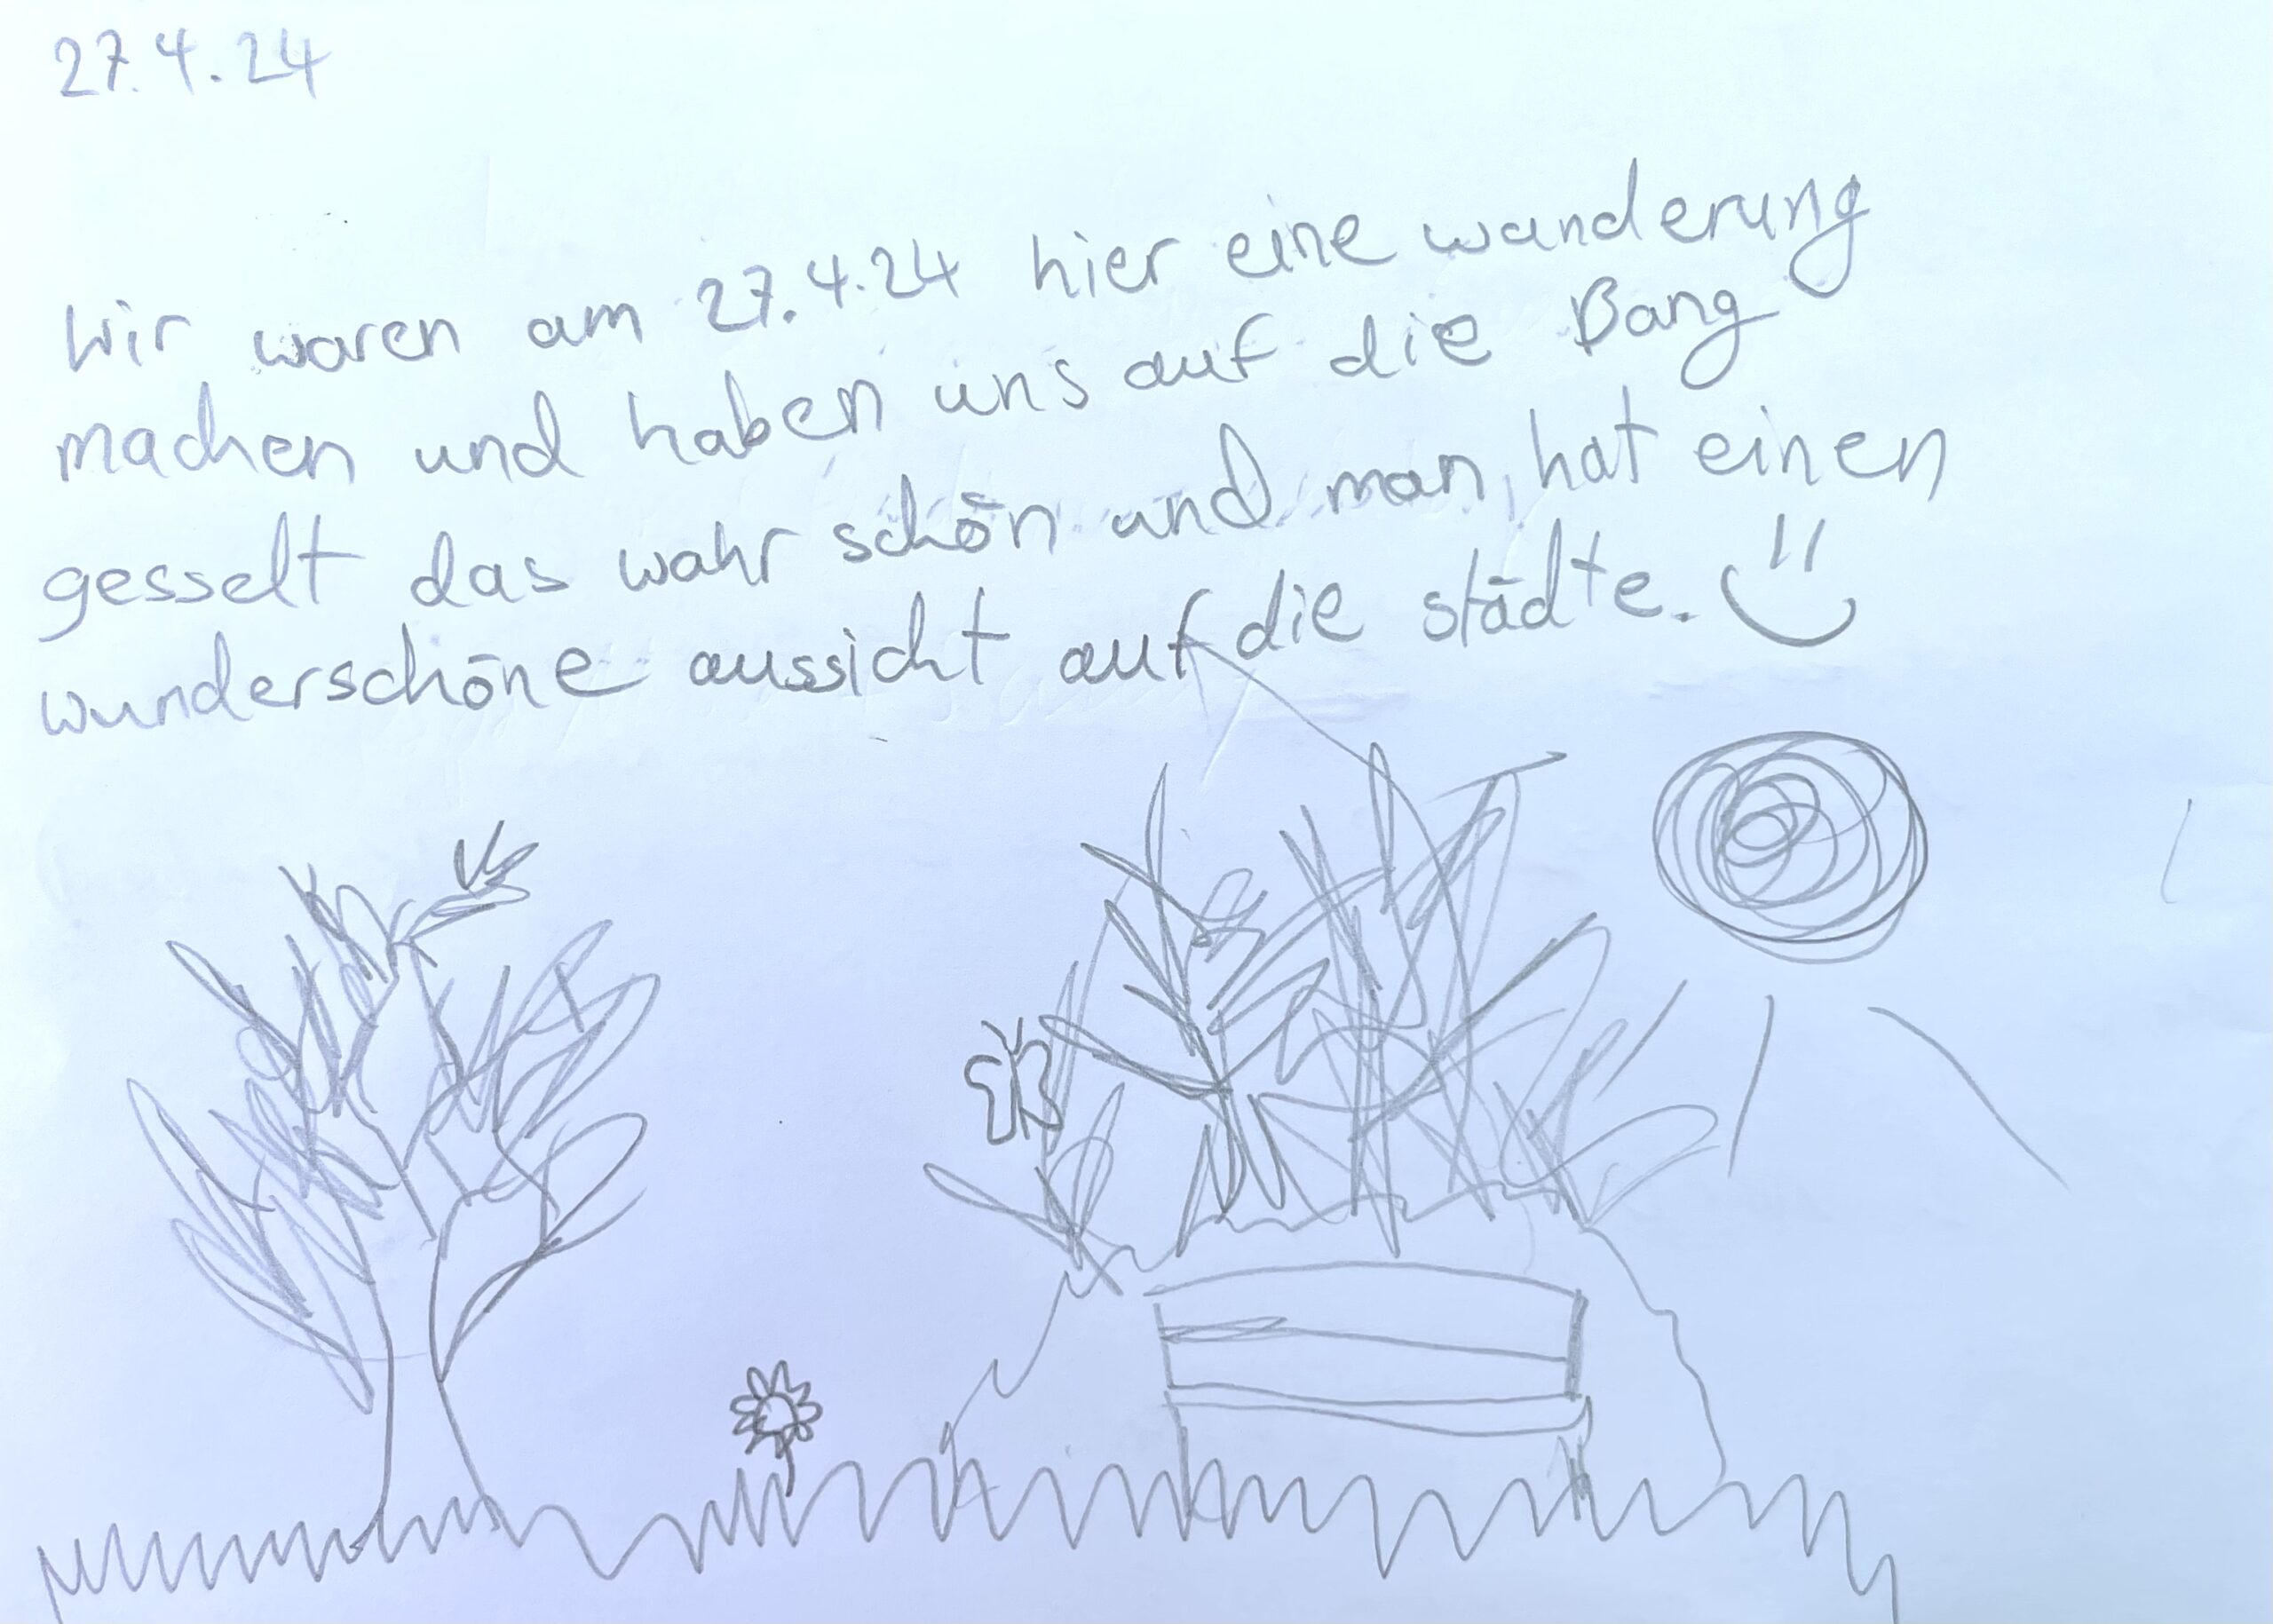 27.4.24
Wir waren am 27.4.24 hier eine wanderung
machen und haben uns auf die Bang
gesselt das wahr schön und man hat einen
wunderschöne aussicht auf die städte.